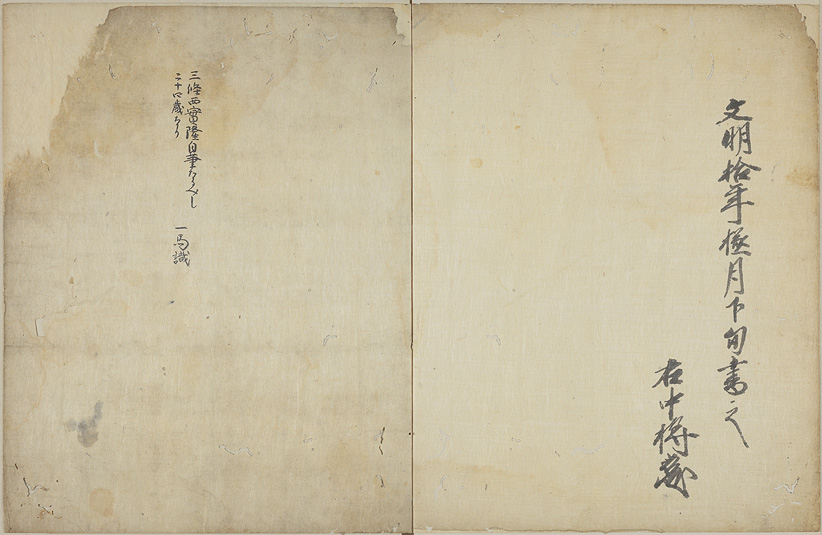 文明拾年極月下旬書之
右中将藤
三條西實隆自筆なるべし 一馬識
二十四歳なり